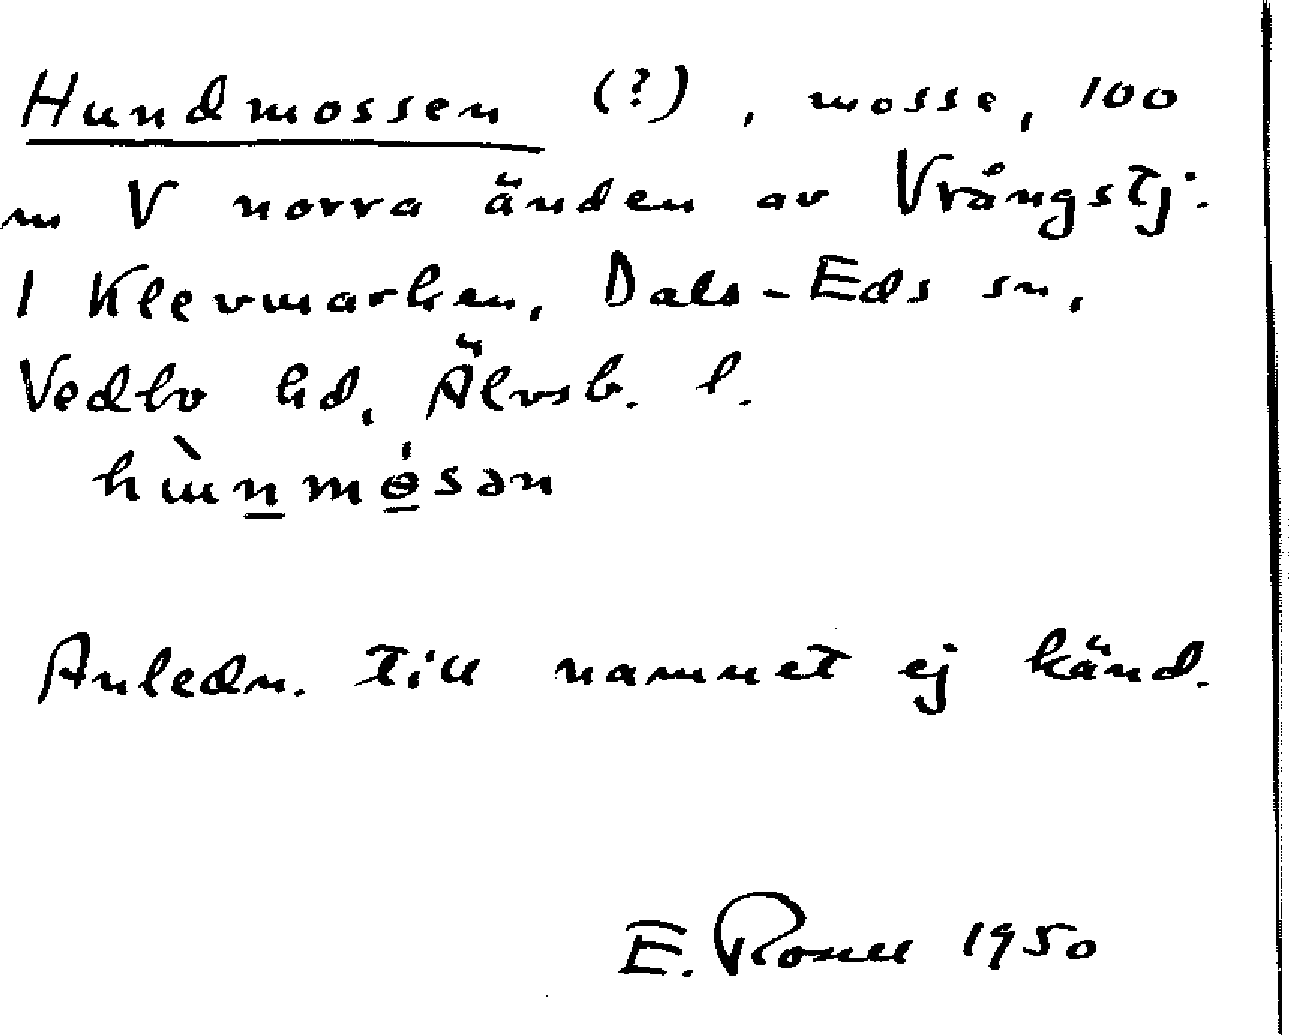 Hundmossen (?), mosse, 100
m V norra änden av Vrångstj.
I Klevmarken, Dals-Eds sn,
Vedbo hd, Älvsb. l.
Anledn. till namnet ej känd.
E. 1950